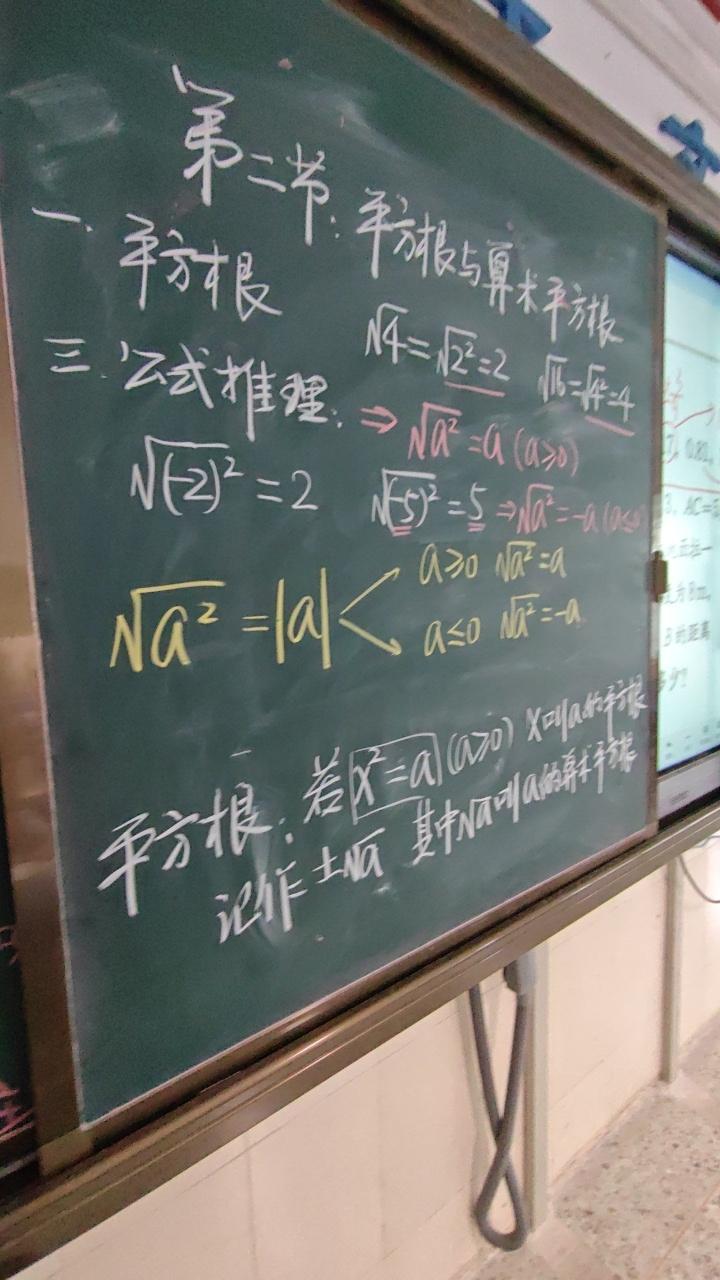 第二节:平方根与算术平方根
一、平方根
√4=√2²=2 √16=√4²=4
三.公式推理. ⇒ √a²=a(a≥0)
√(-2)²=2 √(-5)²=5 ⇒ √a²=-a(a≤0)
√a²=|a|
a≥0 √a²=a
a≤0 √a²=-a
平方根:若x²=a(a≥0) x叫a的平方根
记作±√a 其中√a叫a的算术平方根
0.81
AC=
为8m,
B的距离
多少?